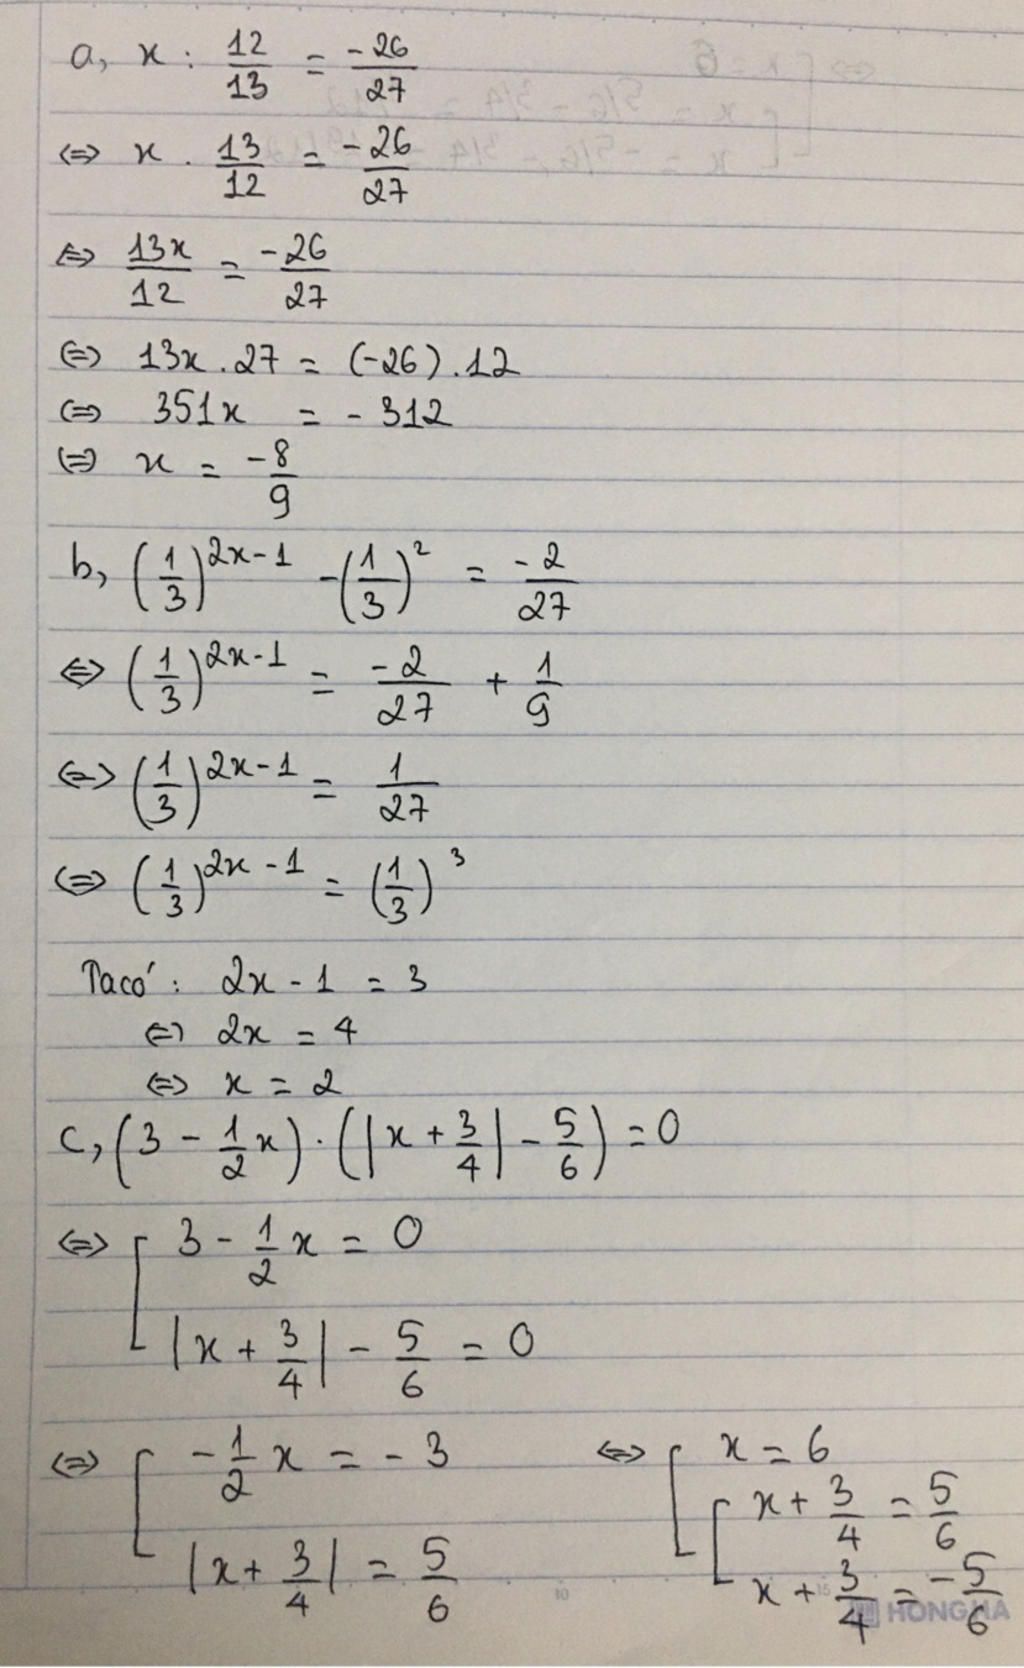 a, x : 12/13 = -26/27
⇔ x . 13/12 = -26/27
⇔ 13x/12 = -26/27
⇔ 13x . 27 = (-26) . 12
⇔ 351x = - 312
⇔ x = -8/9
b, (1/3)^(2x-1) - (1/3)^2 = -2/27
⇔ (1/3)^(2x-1) = -2/27 + 1/9
⇔ (1/3)^(2x-1) = 1/27
⇔ (1/3)^(2x-1) = (1/3)^3
Ta có : 2x - 1 = 3
⇔ 2x = 4
⇔ x = 2
c, (3 - 1/2 x) . (|x + 3/4| - 5/6) = 0
⇔ [ 3 - 1/2 x = 0
|x + 3/4| - 5/6 = 0
⇔ [ -1/2 x = - 3
|x + 3/4| = 5/6
⇔ [ x = 6
[ x + 3/4 = 5/6
x + 3/4 = -5/6
10
15
HONG HA